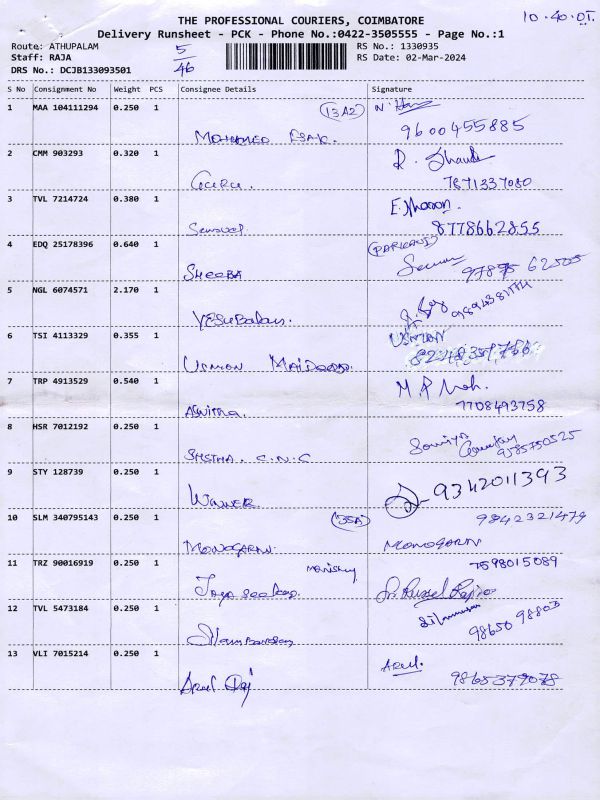 THE PROFESSIONAL COURIERS, COIMBATORE
10.40.01.
Delivery Runsheet - PCK - Phone No.:0422-3505555 - Page No.:1
Route: ATHUPALAM
5/46
RS No.: 1330935
Staff: RAJA
RS Date: 02-Mar-2024
DRS No.: DCJB133093501
S No Consignment No Weight PCS Consignee Details Signature
1 MAA 104111294 0.250 1 (13A2)
9600455885
2 CMM 903293 0.320 1
Guru.
7871337080
3 TVL 7214724 0.380 1
8778662855
4 EDQ 25178396 0.640 1
SHEEBA
5 NGL 6074571 2.170 1
Yesubalan.
6 TSI 4113329 0.355 1 USMAN
7 TRP 4913529 0.540 1
7708493758
8 HSR 7012192 0.250 1
C.N.C 9585750525
9 STY 128739 0.250 1
9342011393
10 SLM 340795143 0.250 1 (35A) 9842321479
MONOGARAN. MONOGARAN
11 TRZ 90016919 0.250 1 7598015089
12 TVL 5473184 0.250 1
98650 98803
13 VLI 7015214 0.250 1 Arul.
Arul Raj 9865379078